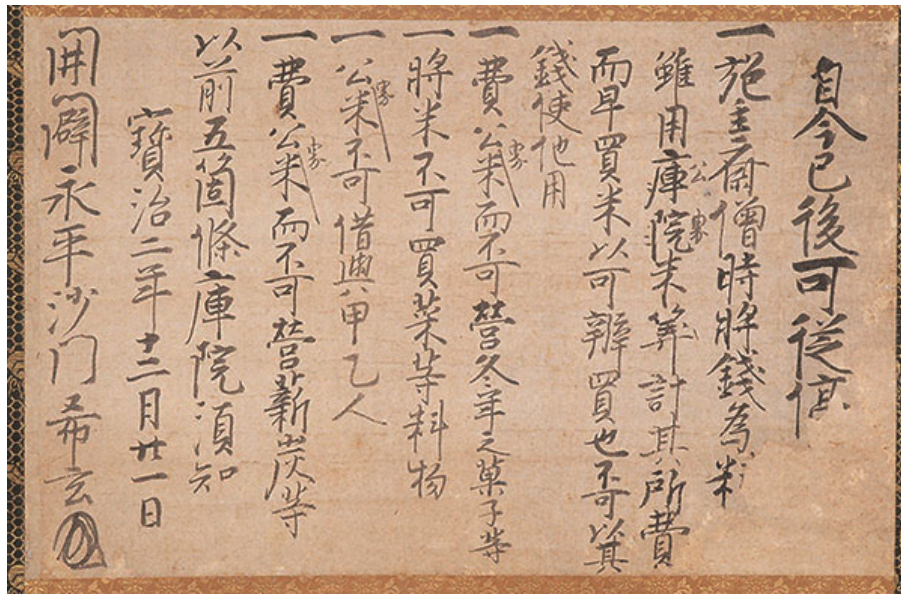 自今已後可従停
一施主斎僧時將錢為料
雖用庫院公界米筭計其所費
而早買米以可辨買也不可以其
錢使他用
一費公界米而不可營冬年之菓子等
一將米不可買菜等料物
一公界米不可借與甲乙人
一費公界米而不可營薪炭等
以前五箇條庫院須知
寶治二年十二月廿一日
開闢永平沙门希玄